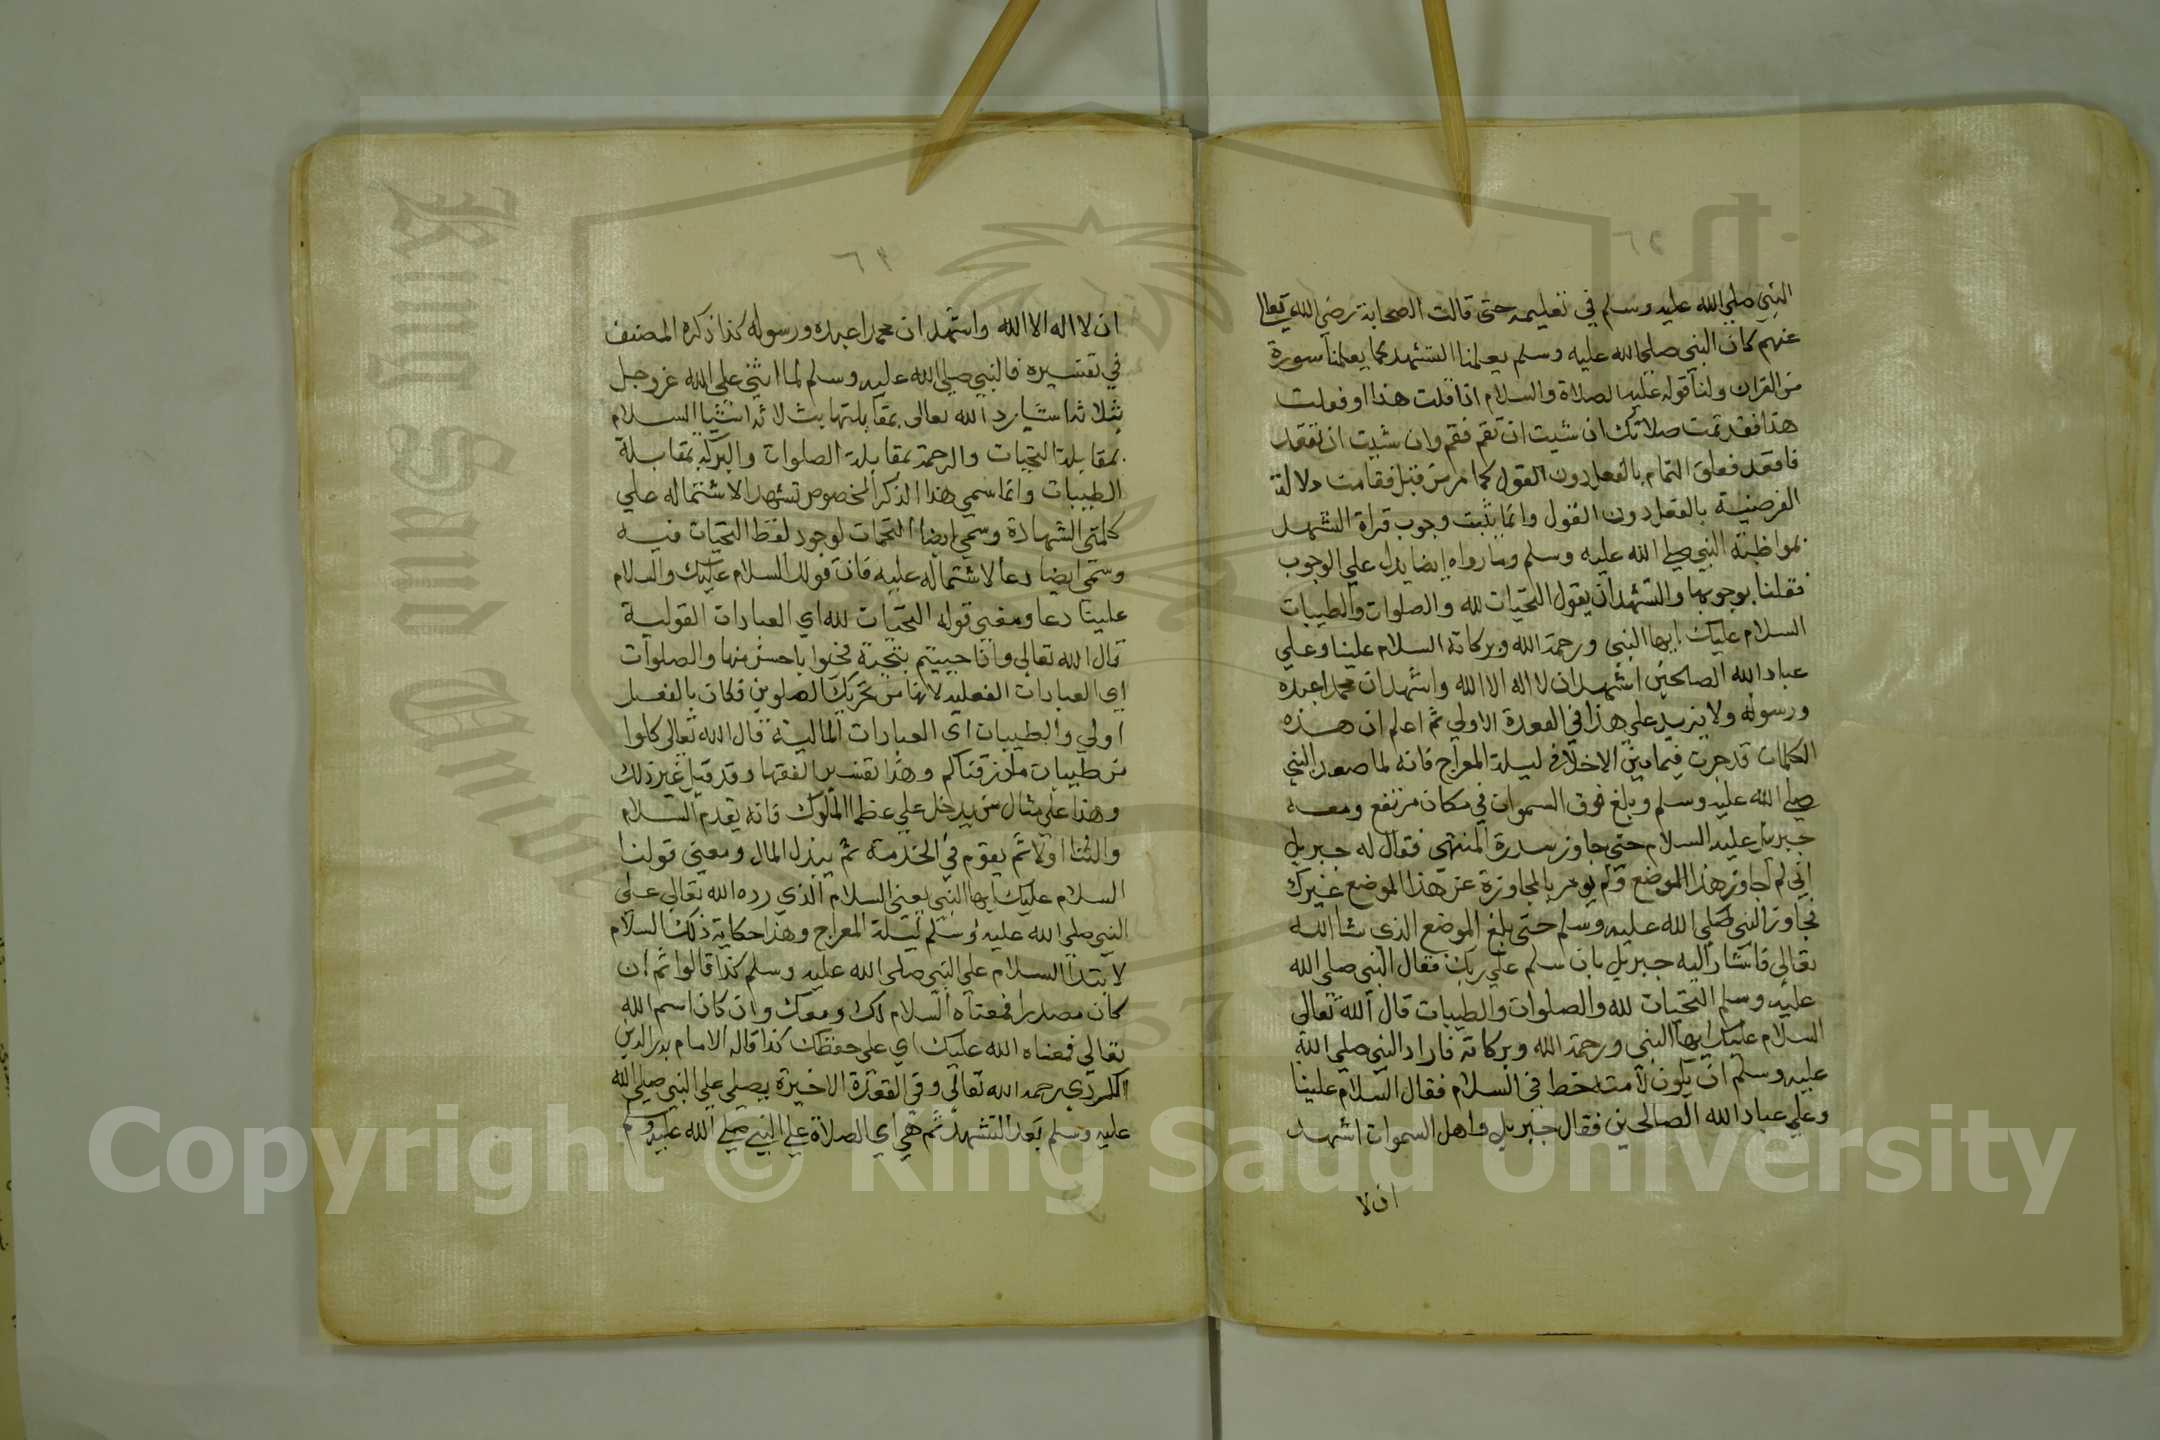 ٦٢
النبي صلي الله عليه وسلم في تعليمه حتى قالت الصحابة رضي الله تعالي
عنهم كان النبي صلي الله عليه وسلم يعلمنا التشهد كما يعلمنا سورة
من القران ولنا قوله عليه الصلاة والسلام اذا قلت هذا او فعلت
هذا فقد تمت صلاتك ان شيت ان تقم فقم وان شيت ان تقعد
فاقعد فعلق التمام بالفعل دون القول كما مر من قبل فقامت دلالة
الفرضية بالفعل دون القول وانما يثبت وجوب قراة التشهد
بمواظبة النبي صلي الله عليه وسلم وما رواه ايضا يدل علي الوجوب
فقلنا بوجوبها والتشهد ان يقول التحيات لله والصلوات والطيبات
السلام عليك ايها النبي ورحمة الله وبركاته السلام علينا وعلي
عباد الله الصلحين اشهد ان لا اله الا الله واشهد ان محمدا عبده
ورسوله ولا يزيد علي هذا في القعدة الاولي ثم اعلم ان هذه
الكلمات قد جرت فيما بين الاخلا في ليلة المعراج فانه لما صعد النبي
صلي الله عليه وسلم وبلغ فوق السموات في مكان مرتفع ومعه
جبريل عليه السلام حتى جاوز سدرة المنتهى فقال له جبريل
اني لم اجاوز هذا الموضع ولم يومر بالمجاوزة عن هذا الموضع غيرك
فجاوز النبي صلي الله عليه وسلم حتى بلغ الموضع الذي شا الله
تعالى فاشار اليه جبريل بان سلم علي ربك فقال النبي صلي الله
عليه وسلم التحيات لله والصلوات والطيبات قال الله تعالى
السلام عليك ايها النبي ورحمة الله وبركاته فاراد النبي صلي الله
عليه وسلم ان يكون لامته حظ في السلام فقال السلام علينا
وعلي عباد الله الصالحين فقال جبريل واهل السموات اشهد
ان لا
٦٣
ان لا اله الا الله واشهد ان محمدا عبده ورسوله كذا ذكره المصنف
في تفسيره فالنبي صلي الله عليه وسلم لما اثنى على الله عز وجل
بثلاثة اشيا رد الله تعالى بمقابلتها بثلاثة اشيا السلام
بمقابلة التحيات والرحمة بمقابلة الصلوات والبركة بمقابلة
الطيبات وانما سمي هذا الذكر المخصوص تشهدا لاشتماله علي
كلمتى الشهادة وسمي ايضا التحيات لوجود لفظ التحيات فيه
وسمى ايضا دعا لاشتماله عليه فان قولك السلام عليك والسلام
علينا دعا ومعنى قوله التحيات لله اي العبادات القولية
قال الله تعالى واذا حييتم بتحية فحيوا باحسن منها والصلوات
اي العبادات الفعلية لانها من تحريك الصلوين فكان بالفعل
اولي والطيبات اي العبادات المالية قال الله تعالى كلوا
من طيبات ما رزقناكم وهذا تفسير الفقها وقد قيل غير ذلك
وهذا على مثال من يدخل علي عظما الملوك فانه يقدم السلام
والثنا اولا ثم يقوم في الخدمة ثم يبذل المال ومعنى قولنا
السلام عليك ايها النبي يعنى السلام الذي رده الله تعالي علي
النبي صلي الله عليه وسلم ليلة المعراج وهذا حكاية ذلك السلام
لا بتدا السلام علي النبي صلي الله عليه وسلم كذا قالوا ثم ان
كان مصدرا فمعناه السلام لك ومعك وان كان اسم الله
تعالي فمعناه الله عليك اي على حفظك كذا قاله الامام بدر الدين
الكردي رحمه الله تعالى وفي القعدة الاخيرة يصلي علي النبي صلي الله
عليه وسلم بعد التشهد ثم هي اي الصلاة علي النبي صلي الله عليه وسلم
Copyright © King Saud University
King Saud University
1957